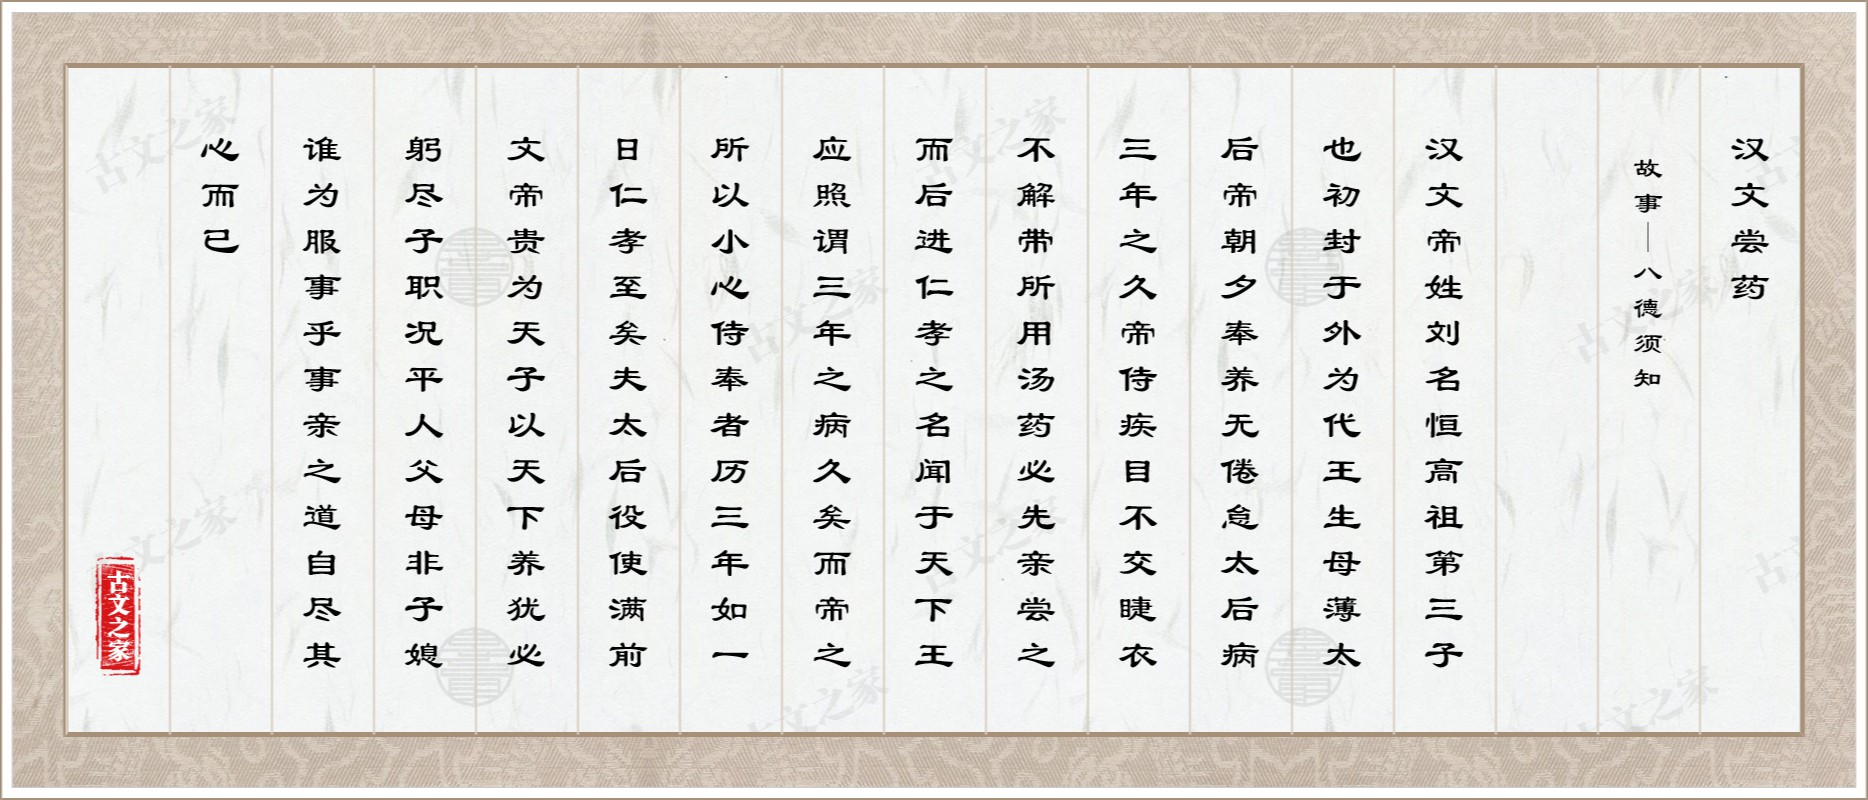 汉文尝药
故事——八德须知
汉文帝姓刘名恒高祖第三子
也初封于外为代王生母薄太
后帝朝夕奉养无倦怠太后病
三年之久帝侍疾目不交睫衣
不解带所用汤药必先亲尝之
而后进仁孝之名闻于天下王
应照谓三年之病久矣而帝之
所以小心侍奉者历三年如一
日仁孝至矣夫太后役使满前
文帝贵为天子以天下养犹必
躬尽子职况平人父母非子媳
谁为服事乎事亲之道自尽其
心而已
古文之家